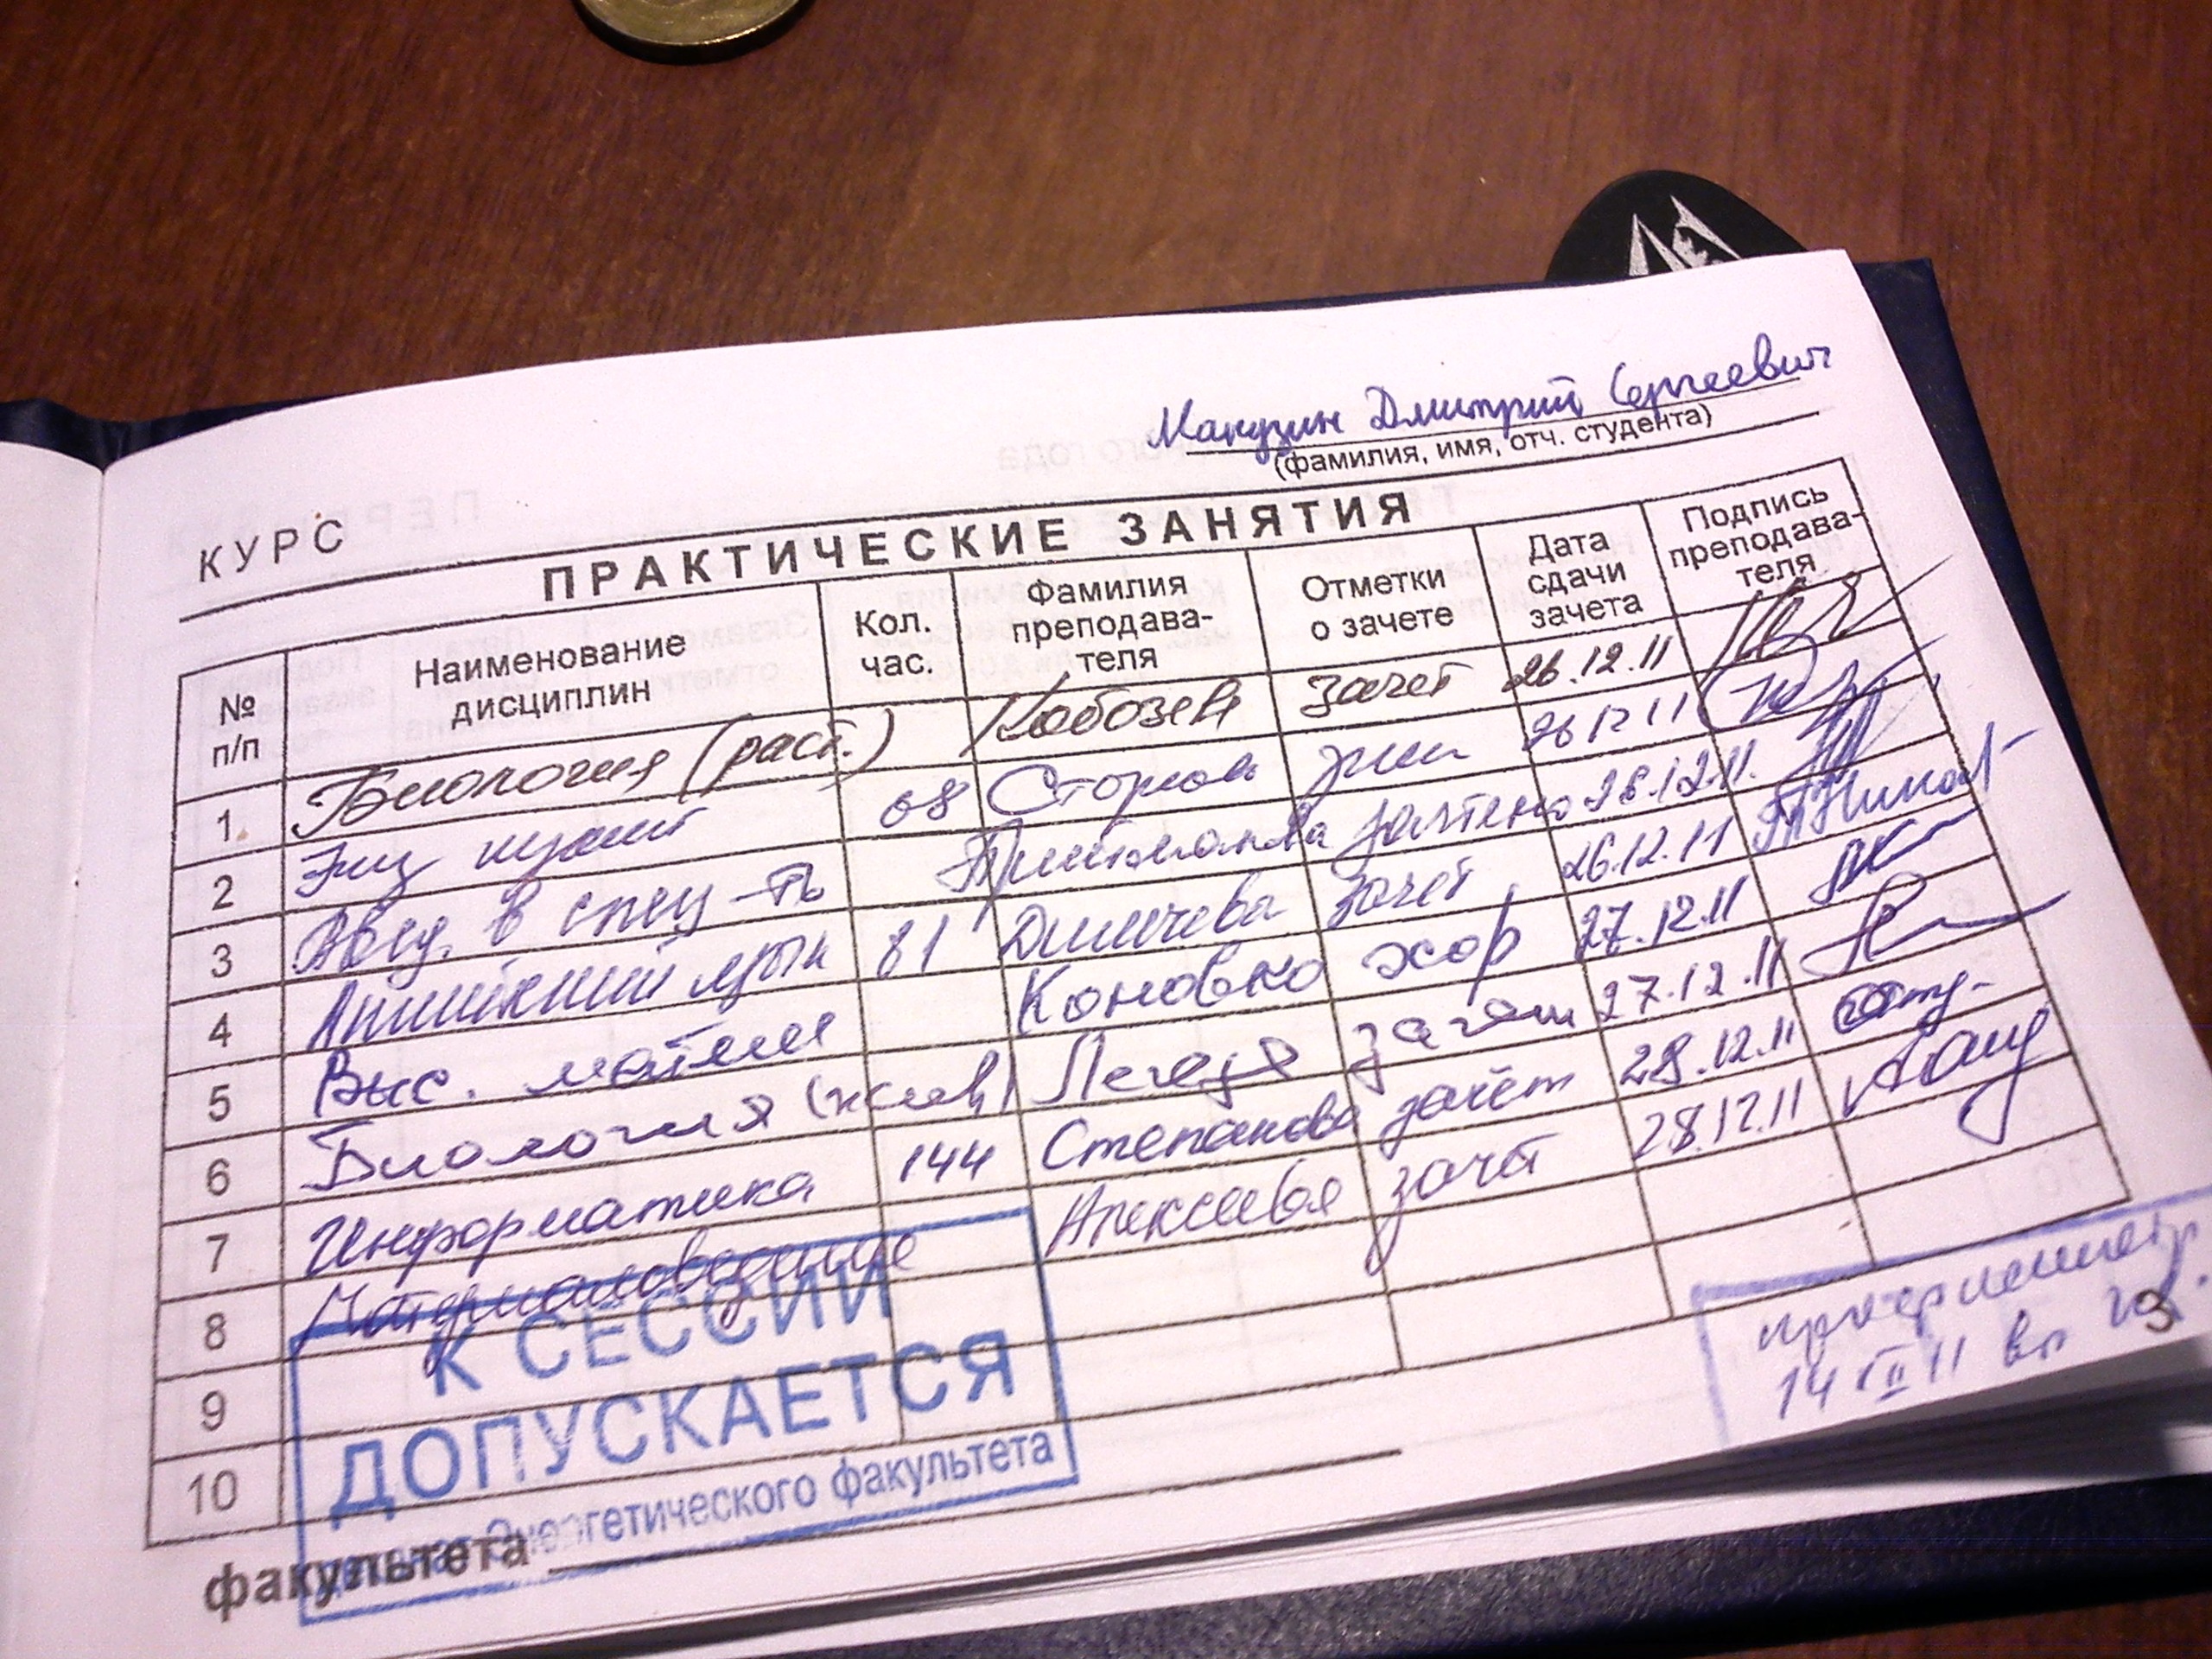 Макузин Дмитрий Сергеевич
(фамилия, имя, отч. студента)
КУРС
ПРАКТИЧЕСКИЕ ЗАНЯТИЯ
№ п/п Наименование дисциплин Кол. час. Фамилия преподава- теля Отметки о зачете Дата сдачи зачета Подпись преподава- теля
1. Биология (раст.) Кобозева зачет 26.12.11
2 68 26 12 11
3 в спец-ть зачтено 26.12.11.
4 Английский язык 81 зачет 26.12.11
5 Выс. матем Коновко хор 27.12.11
6 Биология зачет 27.12.11
7 Информатика 144 Степанова зачёт 28.12.11
8 Материаловедение Алексеева зачёт 28.12.11
9
10
К СЕССИИ
ДОПУСКАЕТСЯ
Энергетического факультета
факультета
14 11
3